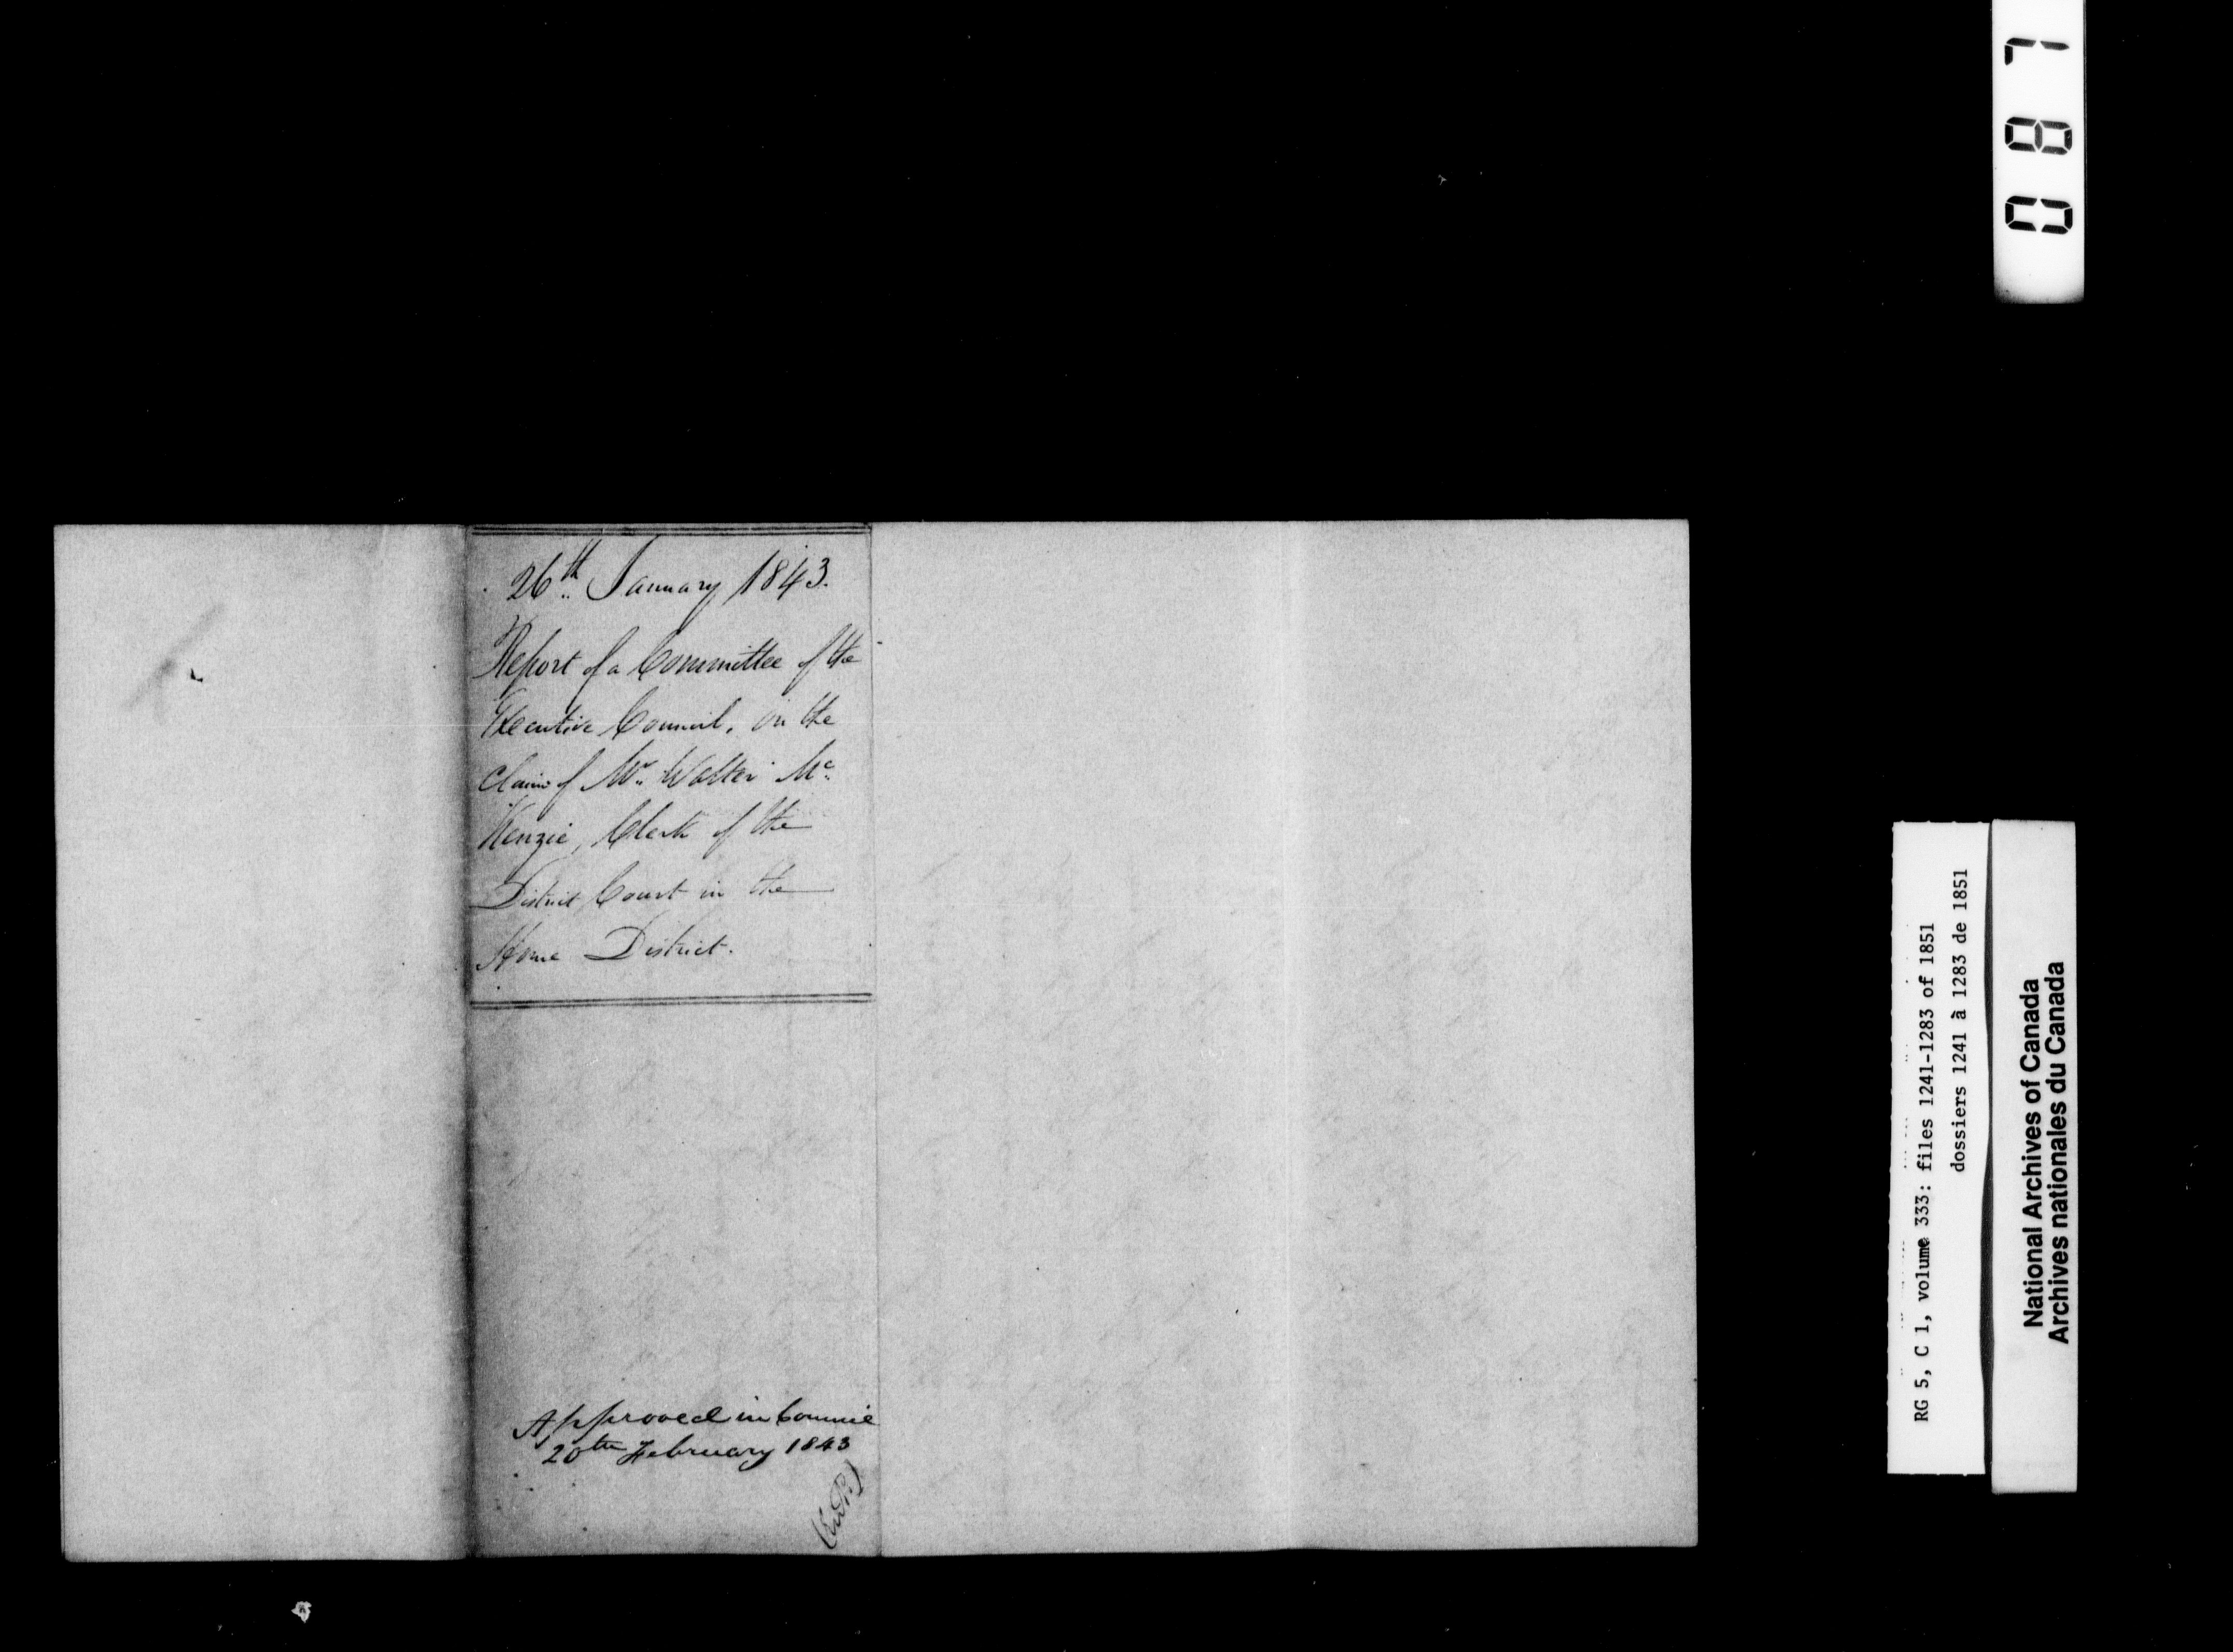 26th January 1843.
Report of a Committee of the
Executive Council, on the
Claim of Mr. Walter Mc
Kenzie, Clerk of the
District Court in the
Home District.
Approved in Council
20th February 1843
087
RG 5, C 1, volume 333: files 1241-1283 of 1851
dossiers 1241 à 1283 de 1851
National Archives of Canada
Archives nationales du Canada